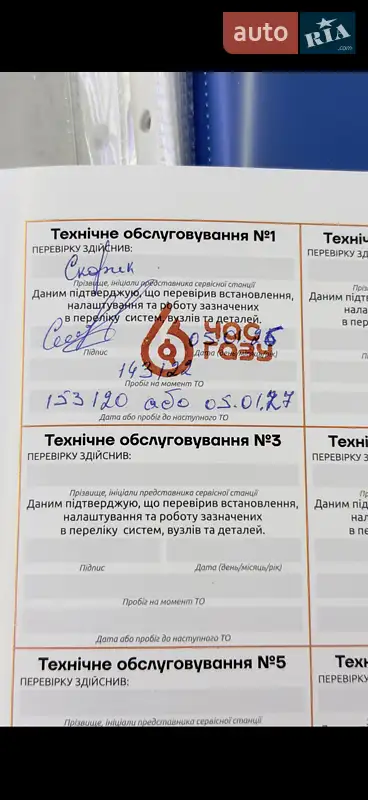 auto RIA .com
Технічне обслуговування №1
ПЕРЕВІРКУ ЗДІЙСНИВ:
Скорик
Прізвище, ініціали представника сервісної станції
Даним підтверджую, що перевірив встановлення,
налаштування та роботу зазначених
в переліку систем, вузлів та деталей.
ЧАС
ГАЗУ
Підпис
Дата (день/місяць/рік)
143122
Пробіг на момент ТО
153120 або 05.01.27
Дата або пробіг до наступного ТО
Технічне обслуговування №3
ПЕРЕВІРКУ ЗДІЙСНИВ:
Прізвище, ініціали представника сервісної станції
Даним підтверджую, що перевірив встановлення,
налаштування та роботу зазначених
в переліку систем, вузлів та деталей.
Підпис
Дата (день/місяць/рік)
Пробіг на момент ТО
Дата або пробіг до наступного ТО
Технічне обслуговування №5
ПЕРЕВІРКУ ЗДІЙСНИВ:
Прізвище, ініціали представника сервісної станції